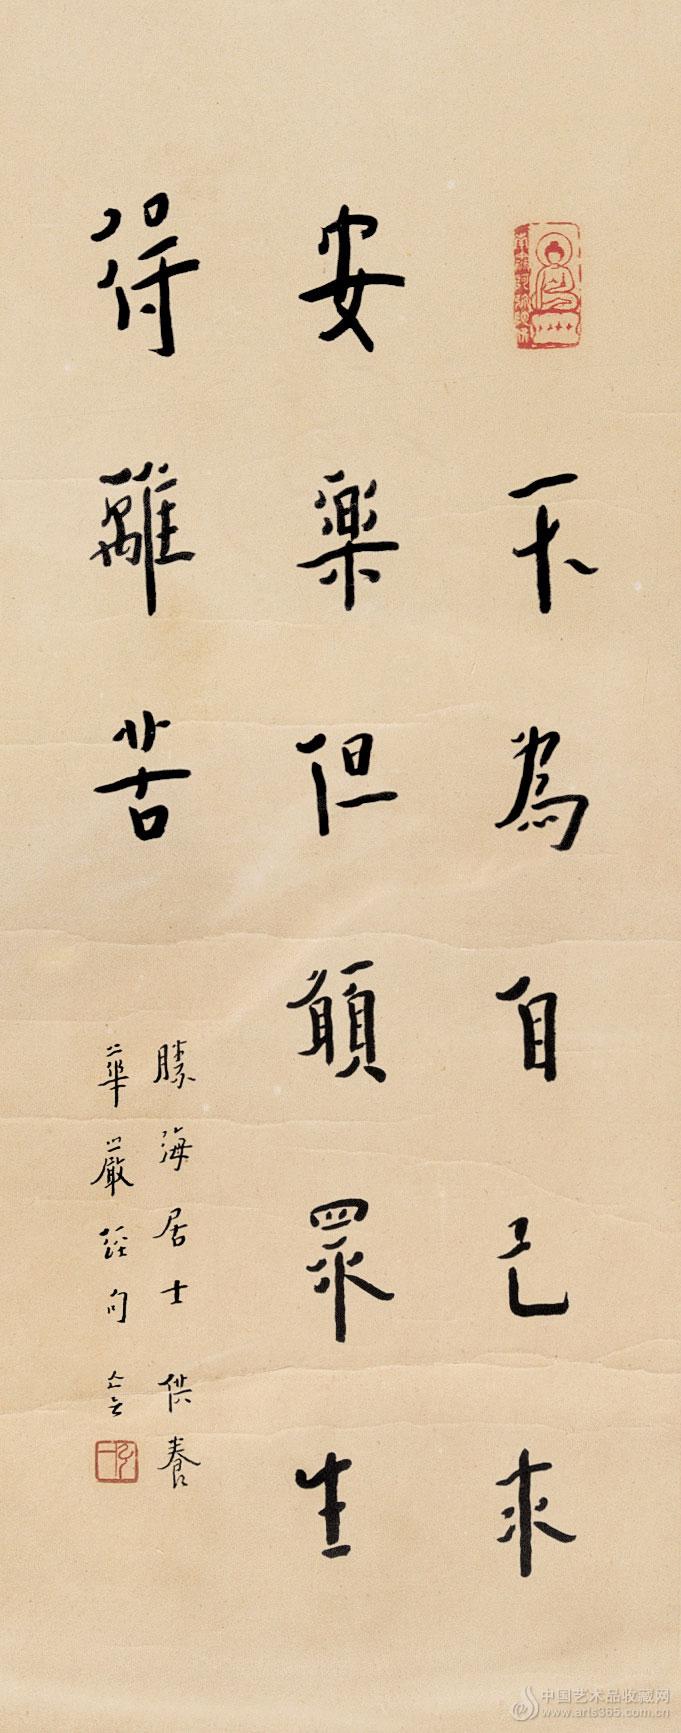 不為自己求
安樂但願眾生
得離苦
勝海居士供養
華嚴經句
弘一
中国艺术品收藏网
www.arts365.com.cn